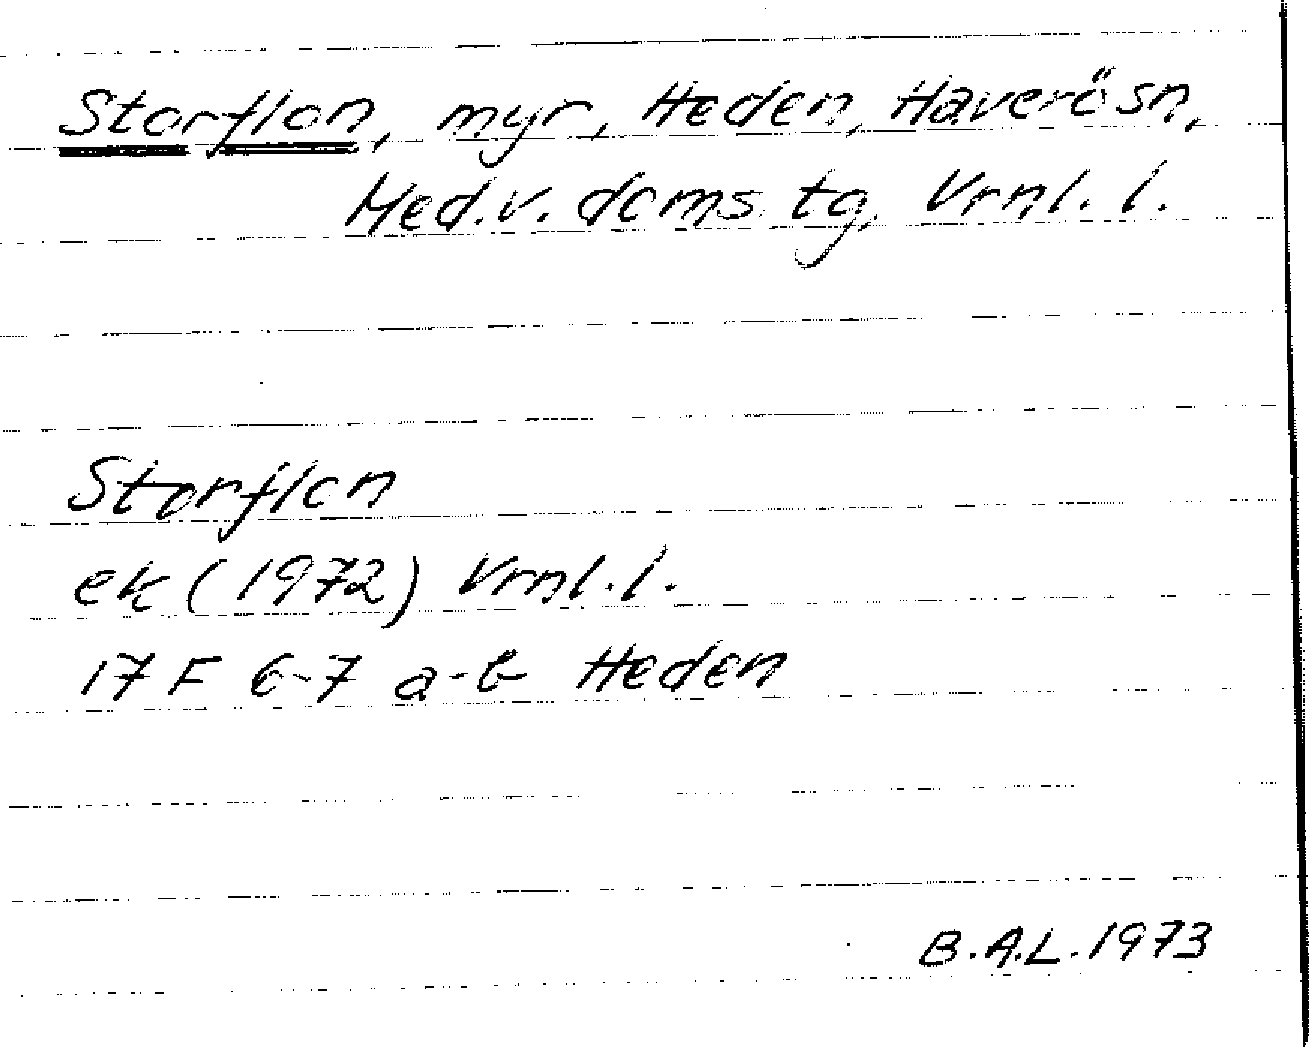 Storflon, myr, Heden, Haverö sn,
Med.v. doms.tg, Vrnl. l.
Storflon
ek (1972) Vrnl. l.
17 F 6-7 a-b Heden
B.A.L. 1973